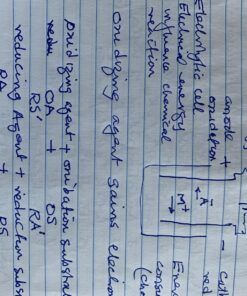 anode +
oxidation
Electrolytic cell
Electrical energy
influence chemical
reaction
A-
M+
- cath
red
Ene
cons
(ch
oxidizing agent gains electron
oxidizing agent + oxidation substra
OA + OS
RS' RA'
reducing Agent + reduction subs
RA + RS